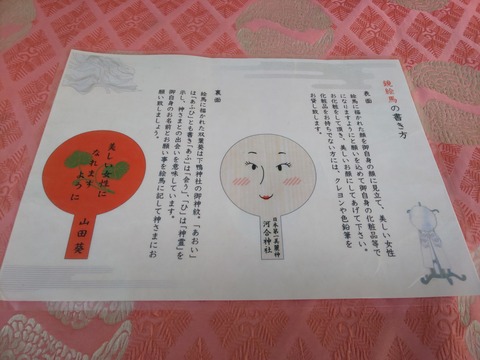 鏡絵馬の書き方
表面
絵馬に描かれた顔を御自身の顔に見立て、美しい女性
になりますようにと願いを込めて御自身の化粧品等で
お化粧をして頂き、美しいお顔にしてあげて下さい。
化粧品をお持ちでない方には、クレヨンや色鉛筆を
お貸し致します。
日本第一美麗神
河合神社
裏面
絵馬に描かれた双葉葵は下鴨神社の御神紋。「あおい」
は「あふひ」とも書き「あふ」は「会う」「ひ」は「神霊」を
示し、神さまとの出会いを意味しています。
御自身のお名前とお願い事を絵馬に記して神さまにお
願い致しましょう。
美しい女性に
なれます
ように
山田葵